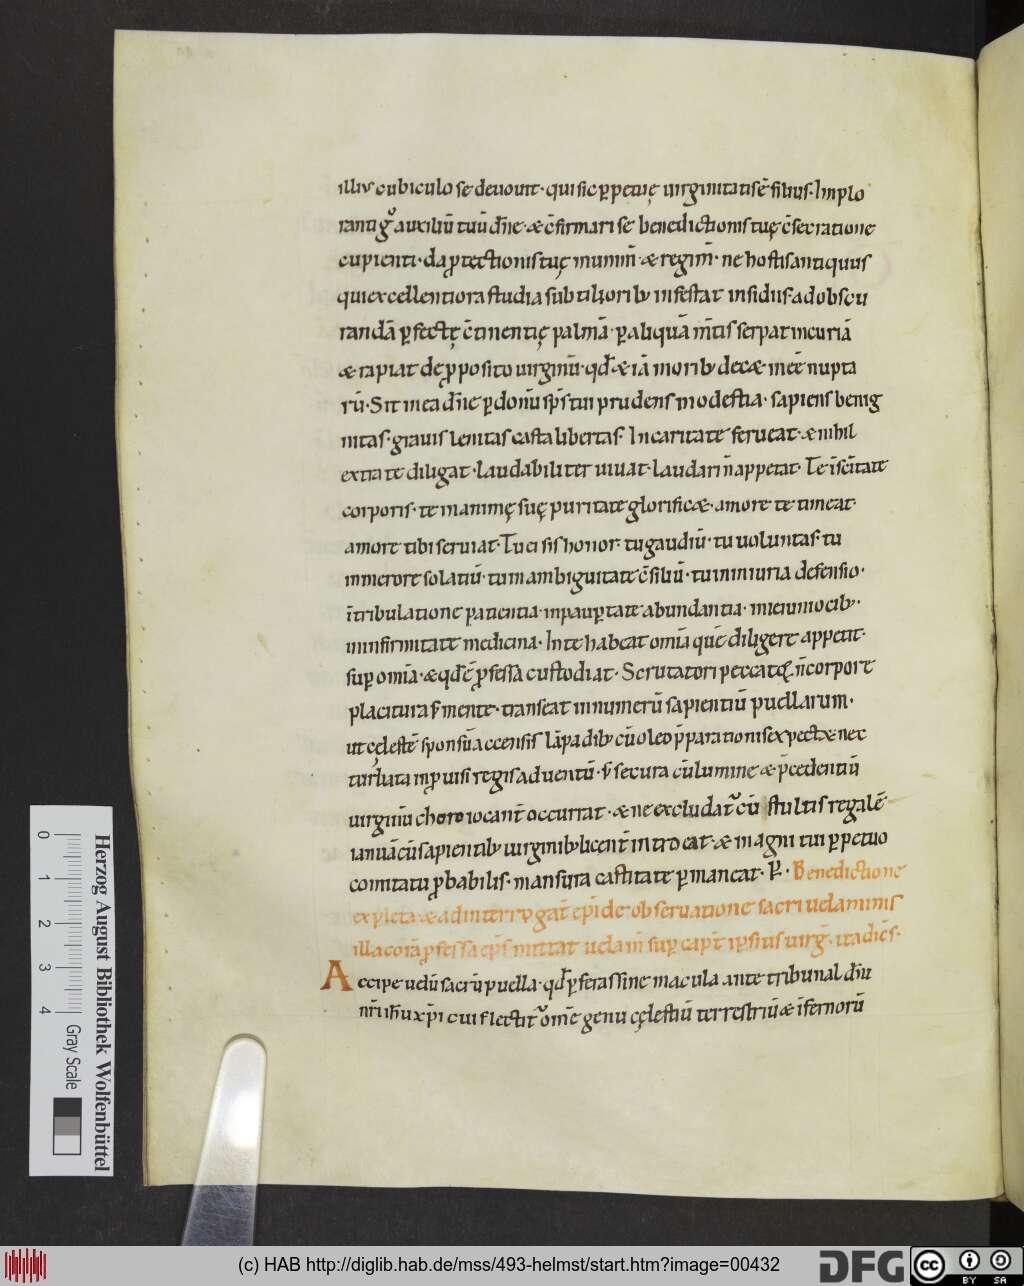 illiꝰ cubiculo se deuouit· qui sic ꝑpetuę uirginitatis ē filius· Implo
ranti gͦ auxiliū tuū dn̄e· & c̄firmari se benedictionis tuę c̄secratione
cupienti· da ꝓtectionis tuę munim̄ & regim̄· ne hostis antiquus
qui excellentiora studia subtiliorib; infestat insidiis· ad obscu
randā ꝑfectę c̄tinentię palmā· ꝑ aliquā m̄tis serpat incuriā
& rapiat de ꝓposito uirginū· qd̄ & iā morib; dec& inee͞ nupta
rū· Sit in ea dn̄e ꝑ donū sp̄s tui prudens modestia· sapiens benig
nitas· grauis lenitas casta libertas· In caritate ferueat· & nihil
extra te diligat· Laudabiliter uiuat· laudari n̄ appetat· Te ī sc̄itate
corporis· te in animę suę puritate glorific&· amore te timeat·
amore tibi seruiat· Tu ei sis honor· tu gaudiū· tu uoluntas· tu
in merore solatiū· tu in ambiguitate c̄siliū· tu in iniuria defensio·
ī tribulatione patientia· in pauꝑtate abundantia· in ieiunio cib;·
in infirmitate medicina· In te habeat omīa quē diligere appetit·
suꝑ omīa· & qd̄ ē ꝓfessa custodiat· Scrutatori peccatoꝝ n̄ corpore
placitura s; mente· transeat in numerū sapientiū puellarum·
ut cęlestē sponsū accensis lāpadib; cū oleo p̄parationis expect& nec
turbata inꝓuisi regis aduentū· s; secura cū lumine & p̄cedentiū
uirginū choro iocant̄ occurrat· & ne excludatᷣ cū stultis regalē
ianuā cū sapientib; uirginib; licent̄ introeat· & in agni tui ꝑpetuo
comitatu ꝓbabilis· mansura castitate ꝑmaneat· P̄· Benedictione
expleta & ad interrogat̄ ep̄i de obseruatione sacri uelaminis
illa corā ꝓfessa ep̄s mittat uelam̄ suꝑ capt̄ ipsius uirḡ· ita dic̄s·
Accipe uelū sacrū puella· qd̄ ꝑferas sine macula ante tribunal dn̄i
nr̄i ih̄u xp̄i cui flectitᷣ om̄e genu cęlestiū terrestriū & īfernorū
0
1
2
3
4
Gray Scale
Herzog August Bibliothek Wolfenbüttel
(c) HAB http://diglib.hab.de/mss/493-helmst/start.htm?image=00432
DFG
cc
BY
SA